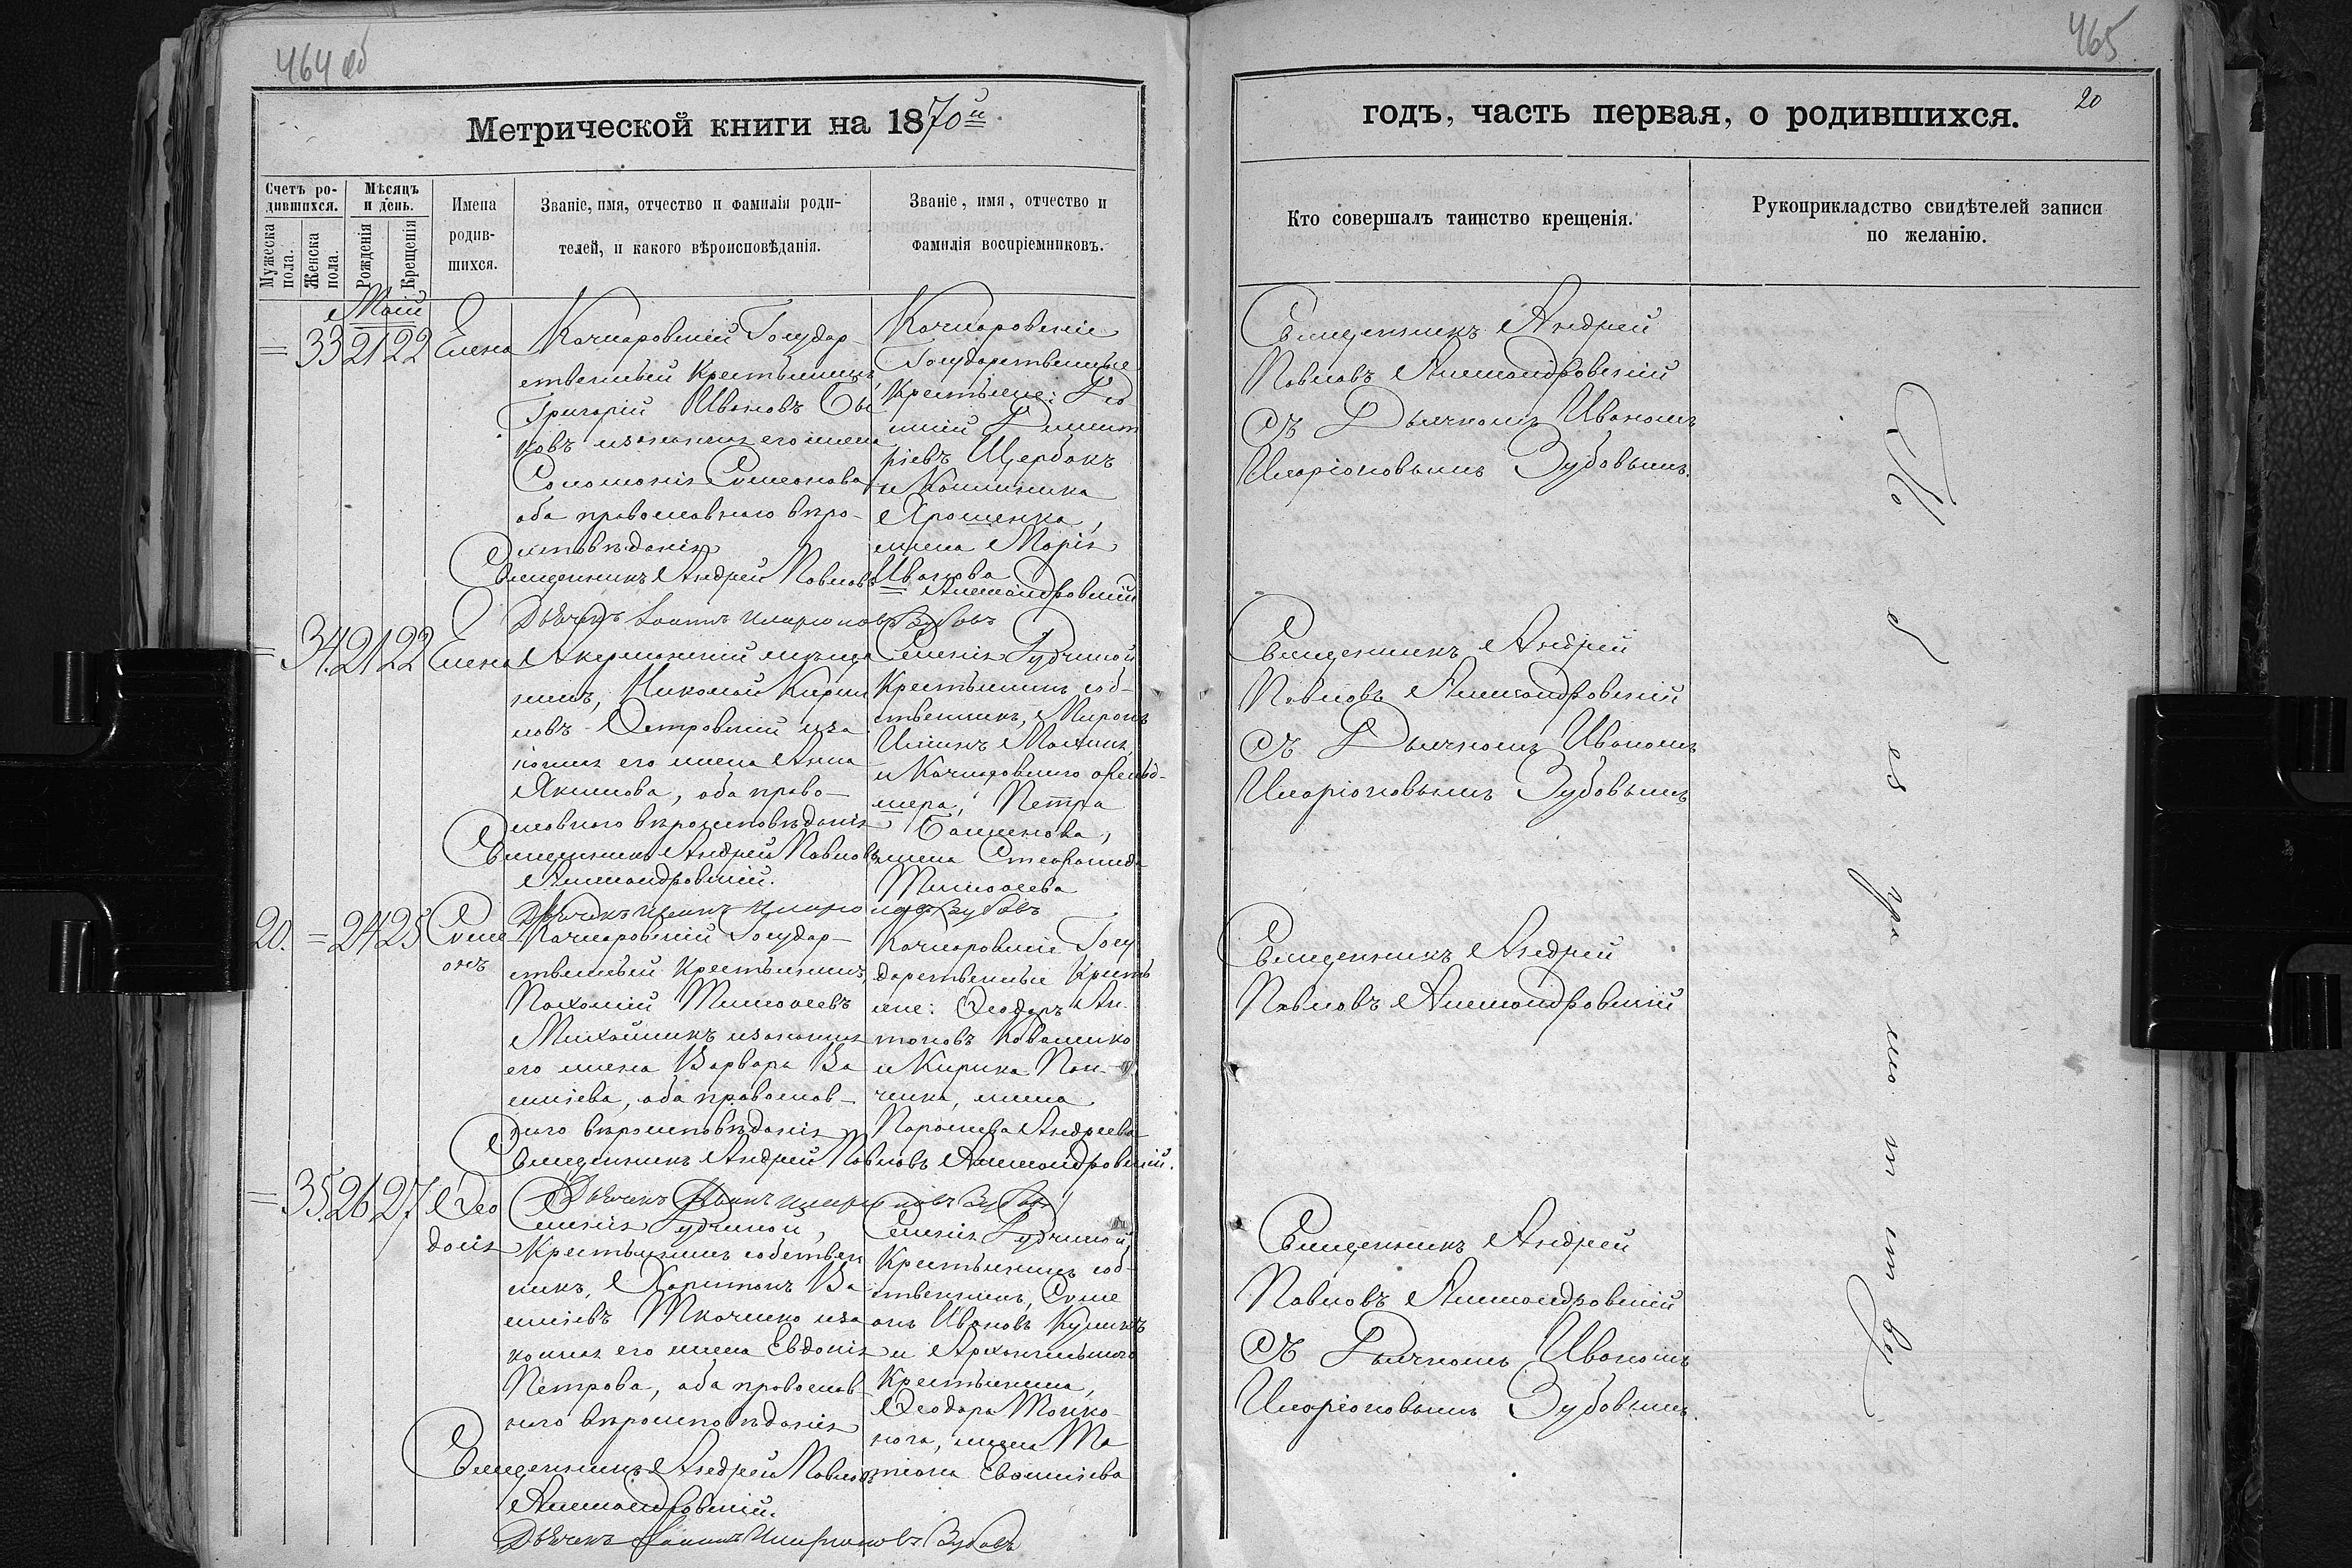 464 об
Метрической книги на 1870й
Счетъ ро-
дившихся.
Мѣсяцъ
и день.
Имена
родив-
шихся.
Званіе, имя, отчество и фамилія роди-
телей, и какого вѣроисповѣданія.
Званіе, имя, отчество и
фамилія воспріемниковъ.
Мужеска
пола.
Женска
пола.
Рожденія
Крещенія
Май
= 33 21 22 Елена
Качкаровскій Государ-
ственный Крестьянинъ,
Григорій Ивановъ Бы
ковъ и законная его жена
Соломонія Симеонова
оба православнаго вѣро-
исповѣданія
Священникъ Андрей Павловъ Александровскій
Дьячекъ Іоаннъ Иларіоновъ Зубовъ
Качкаровскіе
Государственные
Крестьяне:
Димит
ріевъ Щербакъ
и Калинника
Ярошенка,
жена Марія
Иванова
= 34. 21 22 Елена
Акерманскій мѣща
нинъ, Николай Кирил
ловъ Островскій и за
конная его жена Анна
Якимова, оба право-
славнаго вѣроисповѣданія
Священникъ Андрей Павловъ
Александровскій.
Дьячекъ Іоаннъ Иларіоновъ Зубовъ
Селенія Рудчиной
Крестьянинъ соб-
ственникъ, Миронъ
и Качкаровскаго
Петра
жена Стефанида
Тимофеева
20. = 24 25 Симе
онъ
Качкаровскій Государ-
ственный Крестьянинъ,
Пахомій Тимофеевъ
Михайликъ и законная
его жена Варвара Ва
силіева, оба православ-
наго вѣроисповѣданія
Священникъ Андрей Павловъ Александровскій.
Дьячекъ Іоаннъ Иларіоновъ Зубовъ
Качкаровскіе Госу
дарственные Кресть
яне: Ѳеодоръ Ан-
тоновъ Коваленко
и Кирика Пан-
ченка, жена
Параскева Андреева
= 35. 26 27 Ѳео
досія
Селенія Рудчиной,
Крестьянинъ собствен
никъ, Харитонъ Ва
силіевъ Ткаченко и за
конная его жена Евдокія
Петрова, оба православ-
наго вѣроисповѣданія
Священникъ Андрей Павловъ
Александровскій.
Дьячекъ Іоаннъ Иларіоновъ Зубовъ
Селенія Рудчиной,
Крестьянинъ соб-
ственникъ, Симе
онъ Ивановъ Куликъ
и Архангельскаго
Крестьянина,
Ѳеодора Тонко-
нога, жена Та
тіана Евфиміева
465
20
годъ, часть первая, о родившихся.
Кто совершалъ таинство крещенія.
Рукоприкладство свидѣтелей записи
по желанію.
Священникъ Андрей
Павловъ Александровскій
съ Дьячкомъ Иваномъ
Иларіоновымъ Зубовымъ.
Священникъ Андрей
Павловъ Александровскій
съ Дьячкомъ Иваномъ
Иларіоновымъ Зубовымъ
Священникъ Андрей
Павловъ Александровскій
Священникъ Андрей
Павловъ Александровскій
съ Дьячкомъ Иваномъ
Иларіоновымъ Зубовымъ.